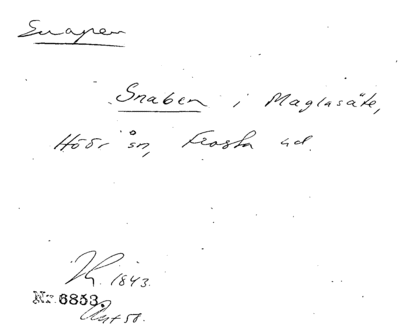 Snapen
Snaben i Maglasäte,
Höörs sn, Frosta hd.
1843.
Nr 6853.